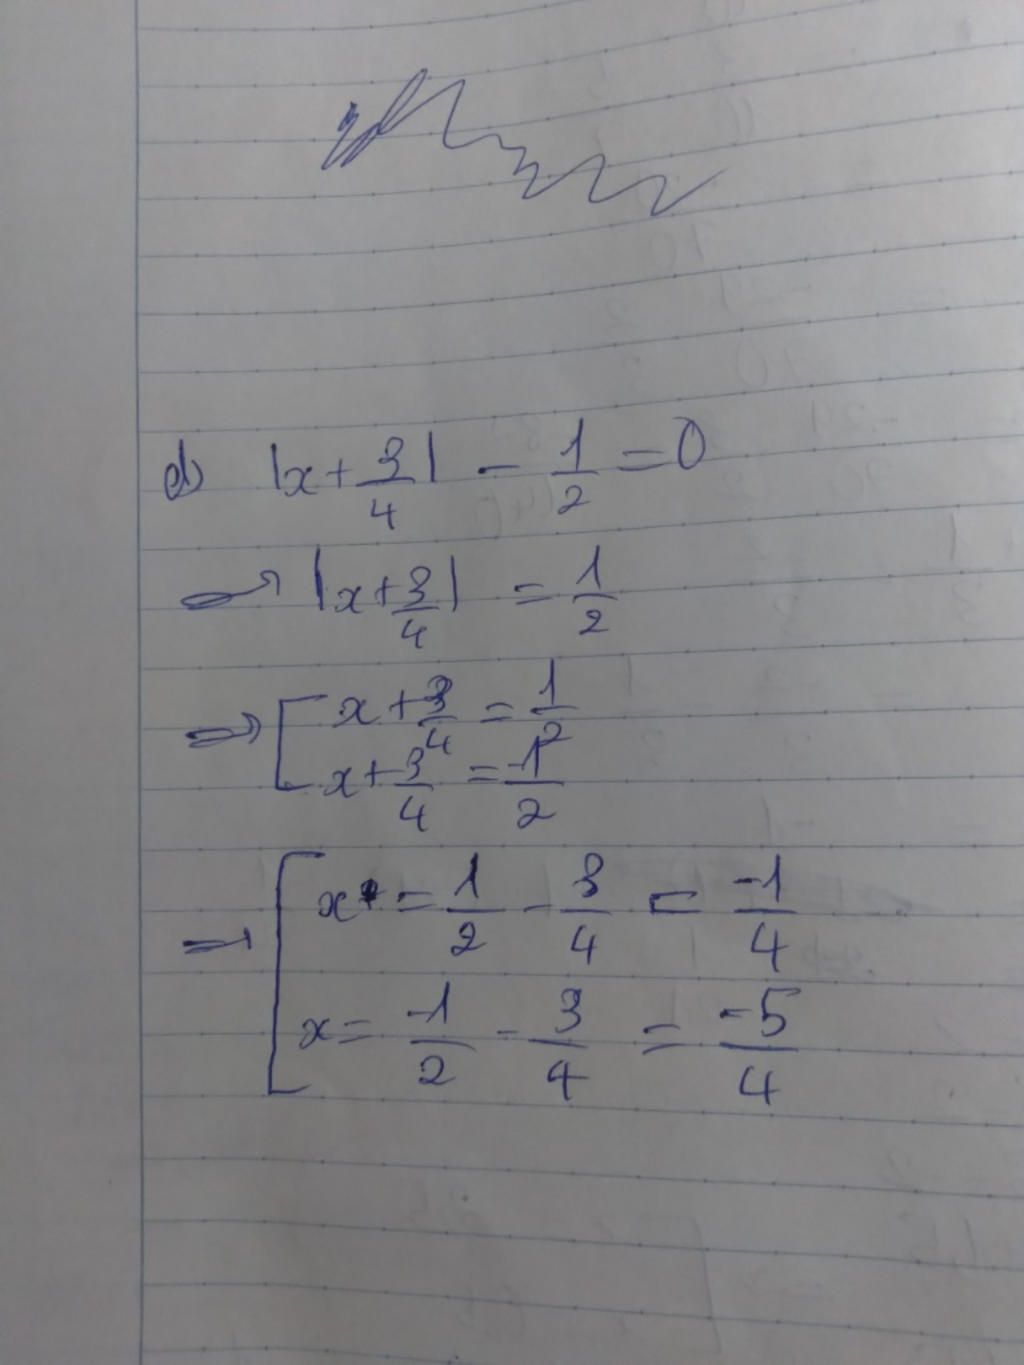 d) |x + 3/4| - 1/2 = 0
⇒ |x + 3/4| = 1/2
⇒ [ x + 3/4 = 1/2
x + 3/4 = -1/2
⇒ [ x = 1/2 - 3/4 = -1/4
x = -1/2 - 3/4 = -5/4